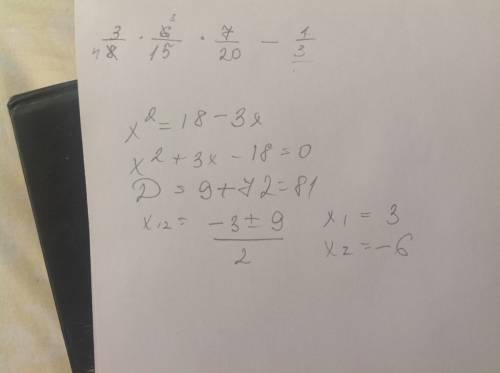 3/8 · 6/15 · 7/20 − 1/3
4 3
x² = 18 − 3x
x² + 3x − 18 = 0
D = 9 + 72 = 81
x₁,₂ = (−3 ± 9)/2 x₁ = 3
x₂ = −6